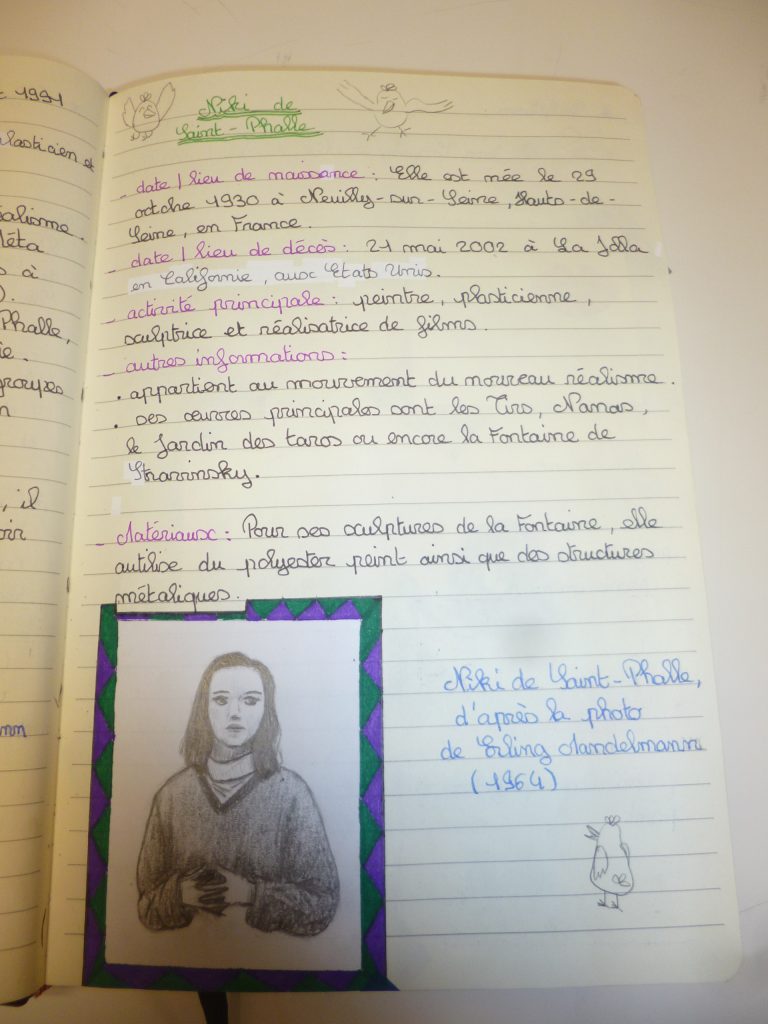 1991
plasticien et
éalisme.
Méta
s à
).
Phalle,
ie.
groupes
n
, il
oir
mm
Niki de
Saint-Phalle
- date / lieu de naissance : Elle est née le 29
octobre 1930 à Neuilly-sur-Seine, Hauts-de-
Seine, en France.
- date / lieu de décès : 21 mai 2002 à La Jolla
en Californie, aux Etats Unis.
- activité principale : peintre, plasticienne,
sculptrice et réalisatrice de films.
- autres informations :
. appartient au mouvement du nouveau réalisme.
. ses œuvres principales sont les Tirs, Nanas,
le Jardin des taros ou encore la Fontaine de
Stravinsky.
- Matériaux : Pour ses sculptures de la Fontaine, elle
utilise du polyester peint ainsi que des structures
métaliques.
Niki de Saint-Phalle,
d'après la photo
de Erling Mandelmann
(1964)